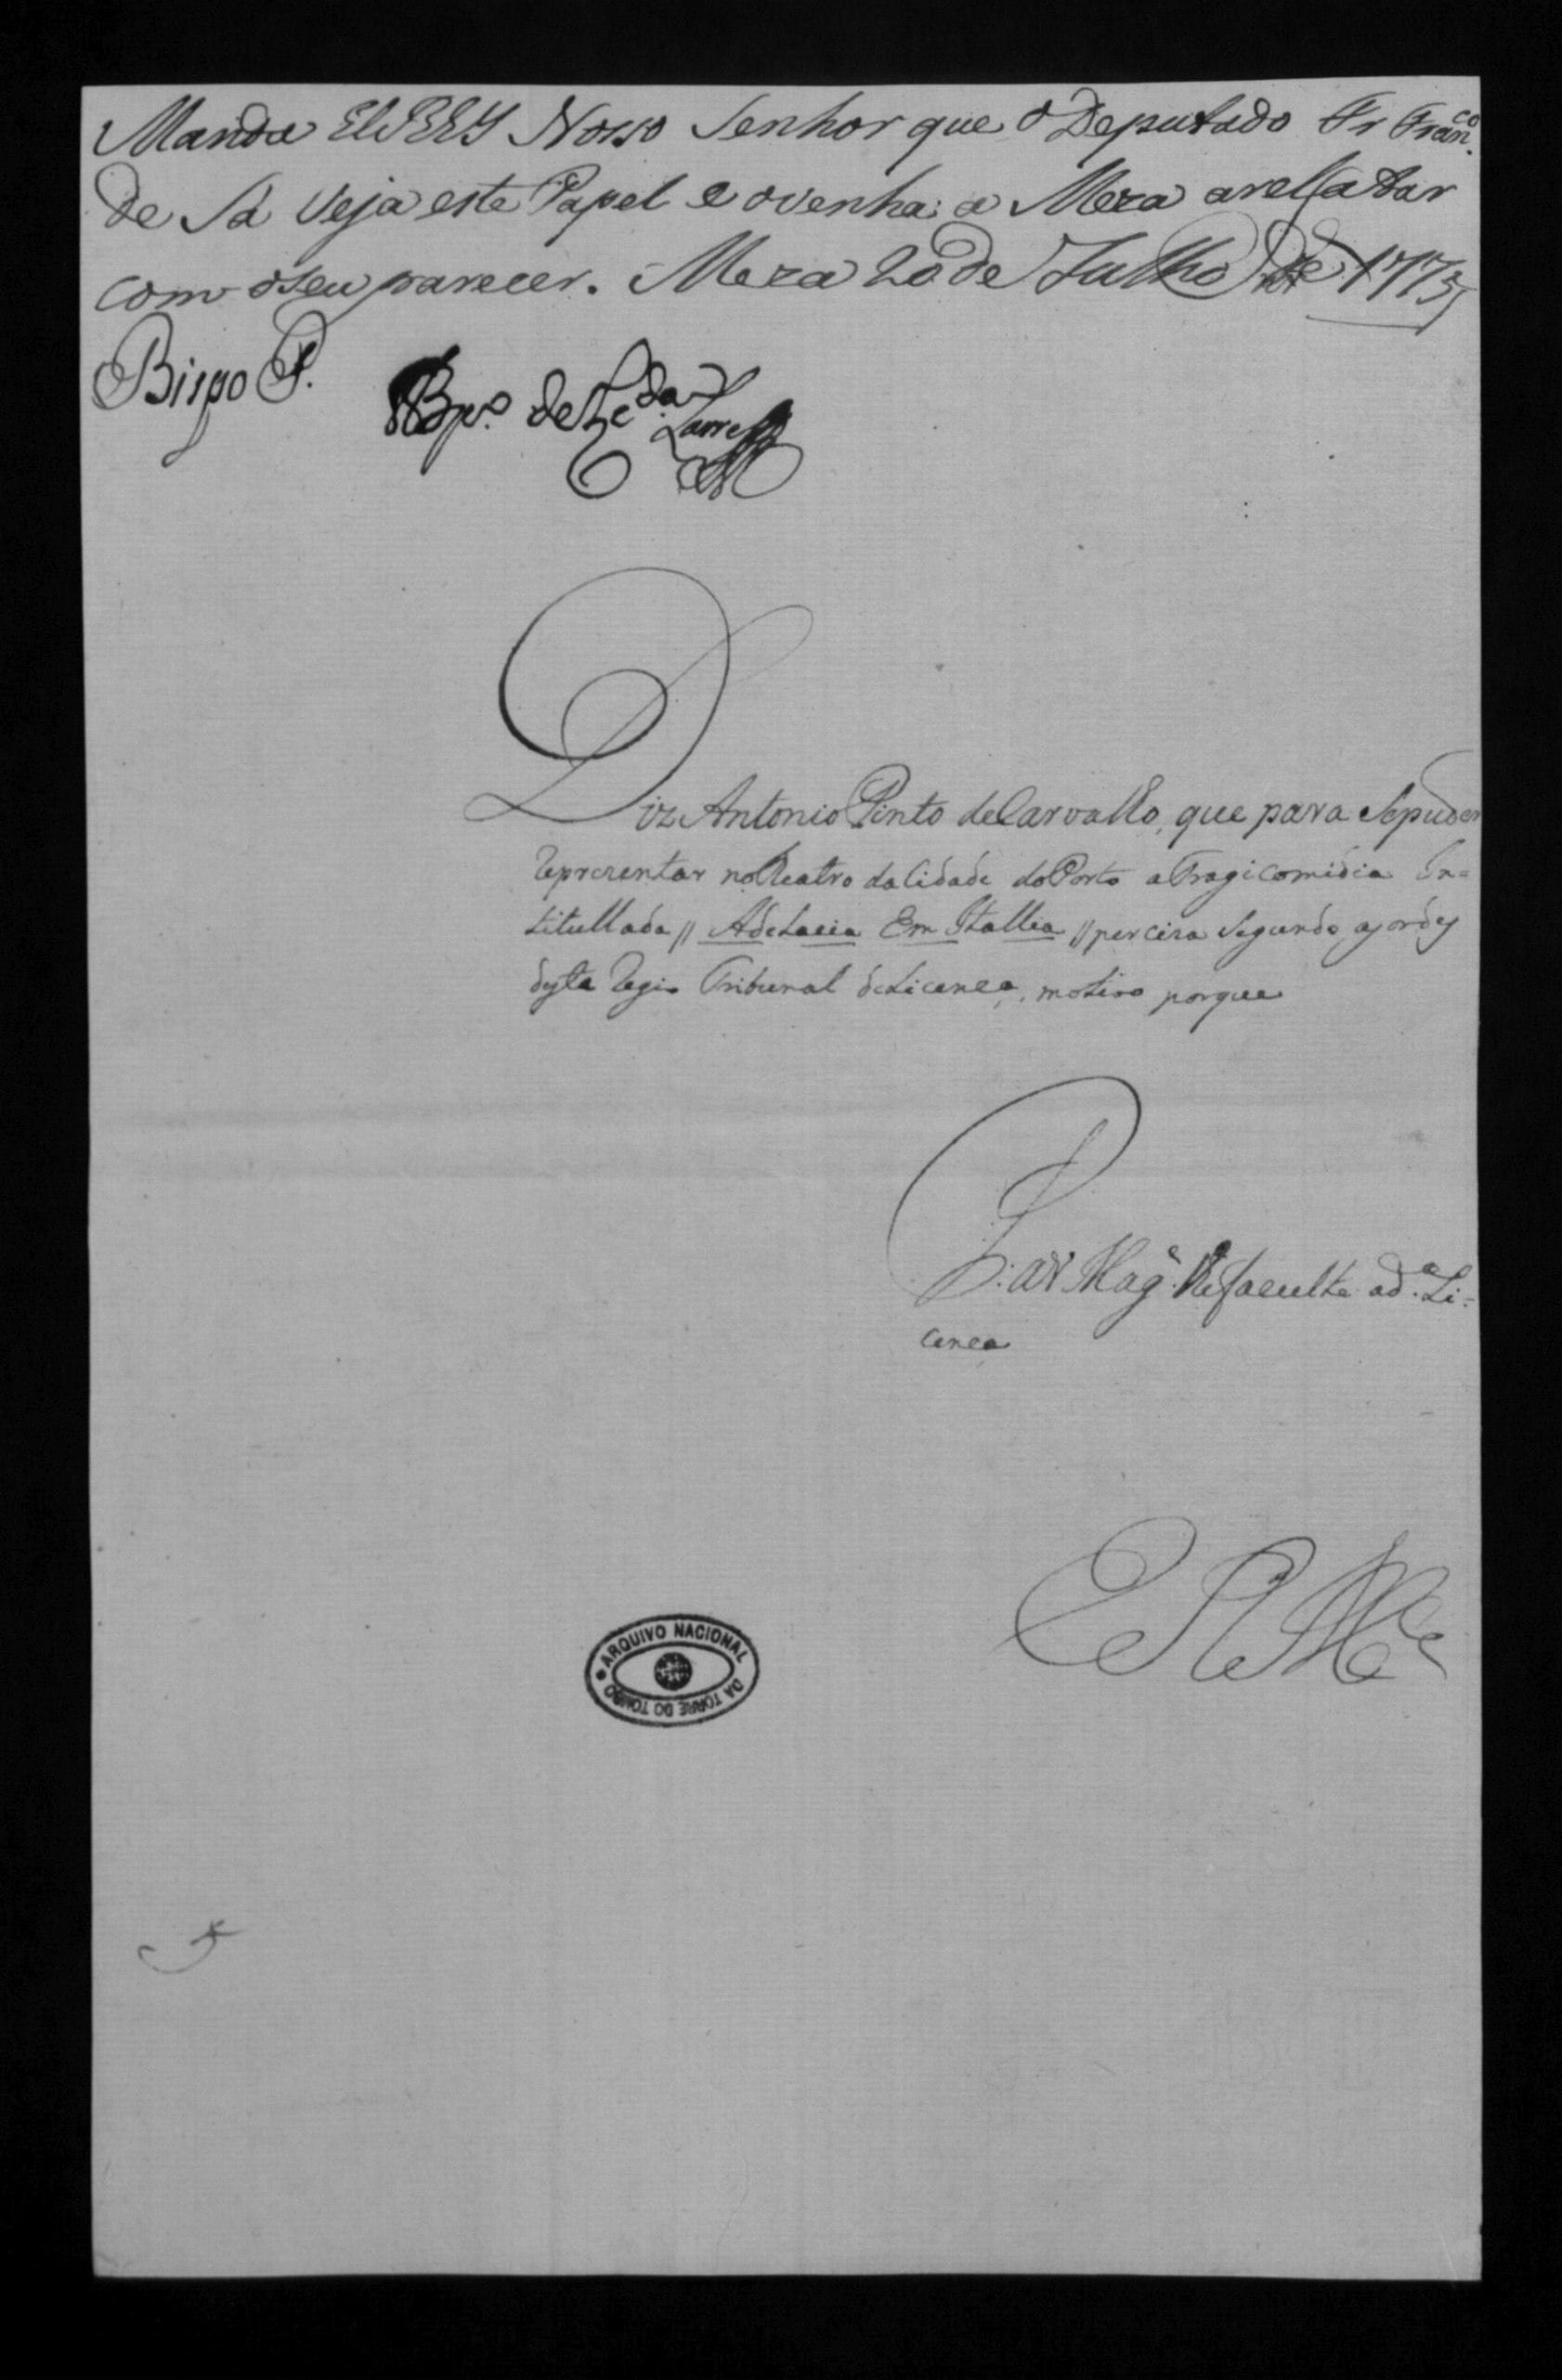 Manda ElREY Nosso Senhor que o Deputado Fr Fran.co
de Sá veja este Papel e o venha a Meza arellatar
com o seu parecer. Meza 20 de Julho de 1773
Bispo P.
Bp.o
Diz Antonio Pinto de Carvalho, que para se puder
reprezentar no theatro da Cidade do Porto a Tragicomidia In=
titullada // Adelacia Em Itallia // perciza segundo as ordes
desta Regio Tribunal de Licença, motivo porque
P. a V. Mag.e lhe faculte a d.a Li=
cença
E R M.ce
ARQUIVO NACIONAL
DA TORRE DO TOMBO